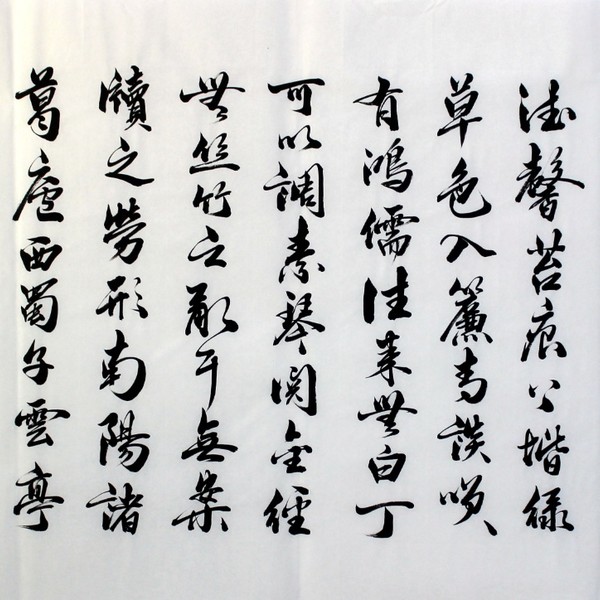 德馨苔痕上堦綠
草色入簾青談咲
有鴻儒往來無白丁
可以調素琴閱金經
無絲竹之亂耳無案
牘之勞形南陽諸
葛廬西蜀子雲亭